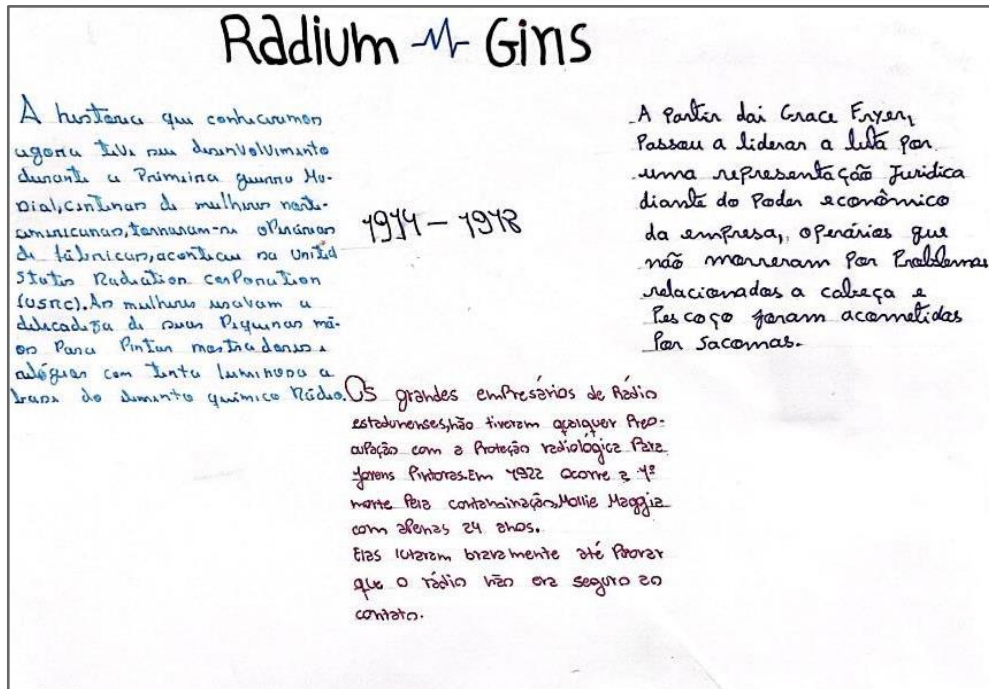 Radium Girls
A história que conheceremos
agora teve seu desenvolvimento
durante a Primeira guerra Mu-
Dial, centenas de mulheres norte-
americanas, tornaram-se operárias
de fábricas, aconteceu na United
States Radiation corporation
(USRC). As mulheres usavam a
delicadeza de suas Pequenas mã-
os Para Pintar mostradores e
relógios com tinta luminosa a
base do elemento químico Rádio.
1914 - 1918
Os grandes emPresários de Rádio
estadunenses, não tiveram qualquer Preo-
cuPação com a Proteção radiológica Para
Jovens Pintoras. Em 1922 ocorre a 1ª
morte Pela contaminação, Mollie Maggia
com aPenas 24 anos.
Elas lutaram bravamente até Provar
que o rádio não era seguro ao
contato.
A Partir dai Grace Fryer,
Passou a liderar a luta Por
uma representação Juridica
diante do Poder econômico
da empresa,, oPerárias que
não morreram Por Problemas
relacionados a cabeça e
Pescoço foram acometidas
Por sacomas.